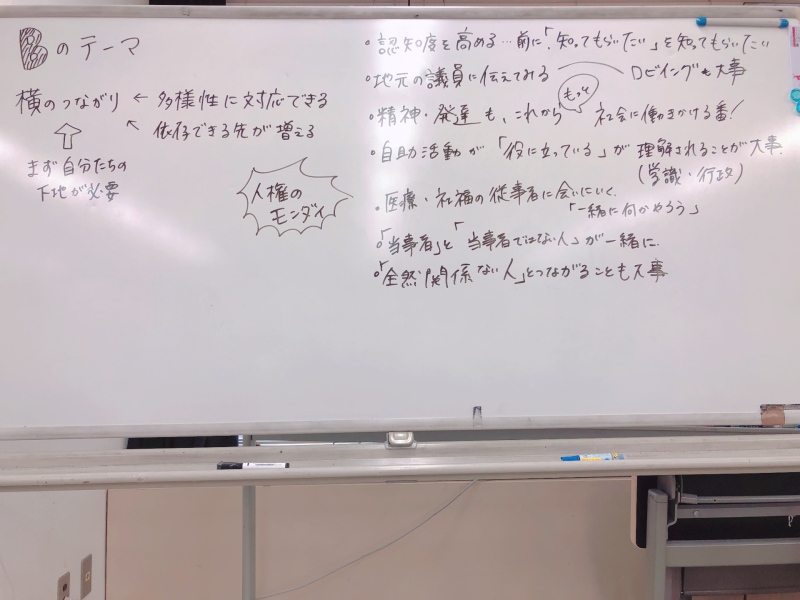 Bのテーマ
横のつながり ← 多様性に対応できる
← 依存できる先が増える
まず自分たちの
下地が必要
人権の
モンダイ
・認知度を高める…前に「知ってもらいたい」を知ってもらいたい
・地元の議員に伝えてみる ロビイングも大事
・精神・発達も、これから もっと 社会に働きかける番!
・自助活動が「役に立っている」が理解されることが大事.
(学識・行政)
・医療・社福の従事者に会いにいく.
「一緒に何かやろう」
・「当事者」と「当事者ではない人」が一緒に.
・「全然関係ない人」とつながることも大事